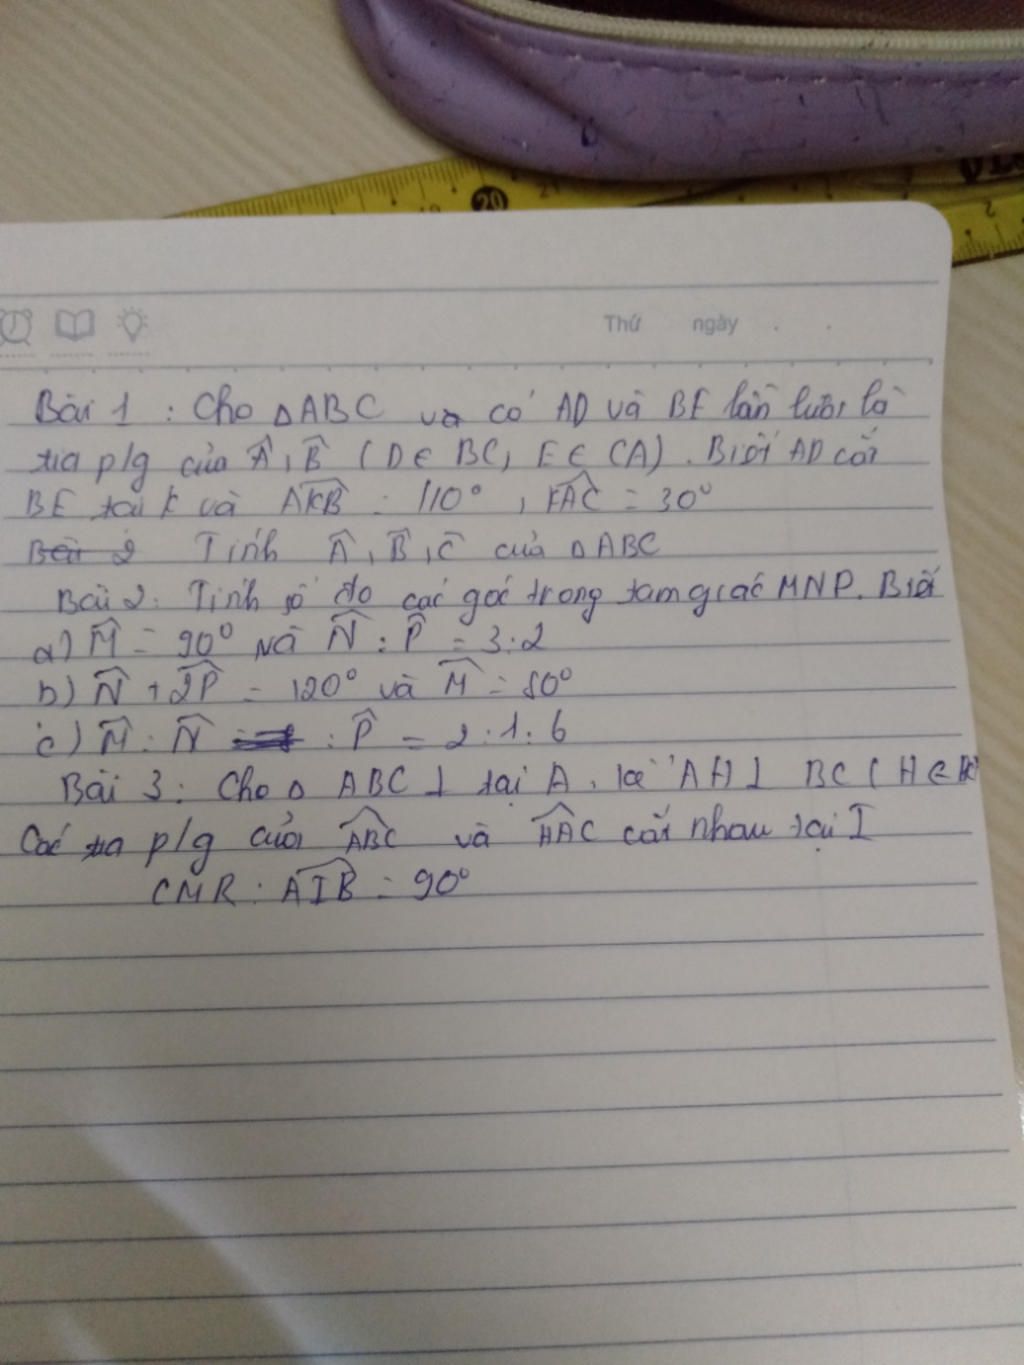 20
Thứ ngày . .
Bài 1 : Cho △ABC và có AD và BE lần lượt là
tia p/g của Â, B̂ (D ∈ BC, E ∈ CA). Biết AD cắt
BE tại K và AKB = 110° , KAC = 30°
Bài 2 Tính Â, B̂, Ĉ của △ABC
Bài 2: Tính số đo các góc trong tam giác MNP. Biết
a) M̂ = 90° và N̂ : P̂ = 3:2
b) N̂ + 2P̂ = 120° và M̂ = 80°
c) M̂ : N̂ : P̂ = 2:1:6
Bài 3: Cho △ ABC ⊥ tại A. kẻ AH ⊥ BC (H ∈ BC)
Các tia p/g của ABC và HAC cắt nhau tại I
CMR : AIB = 90°